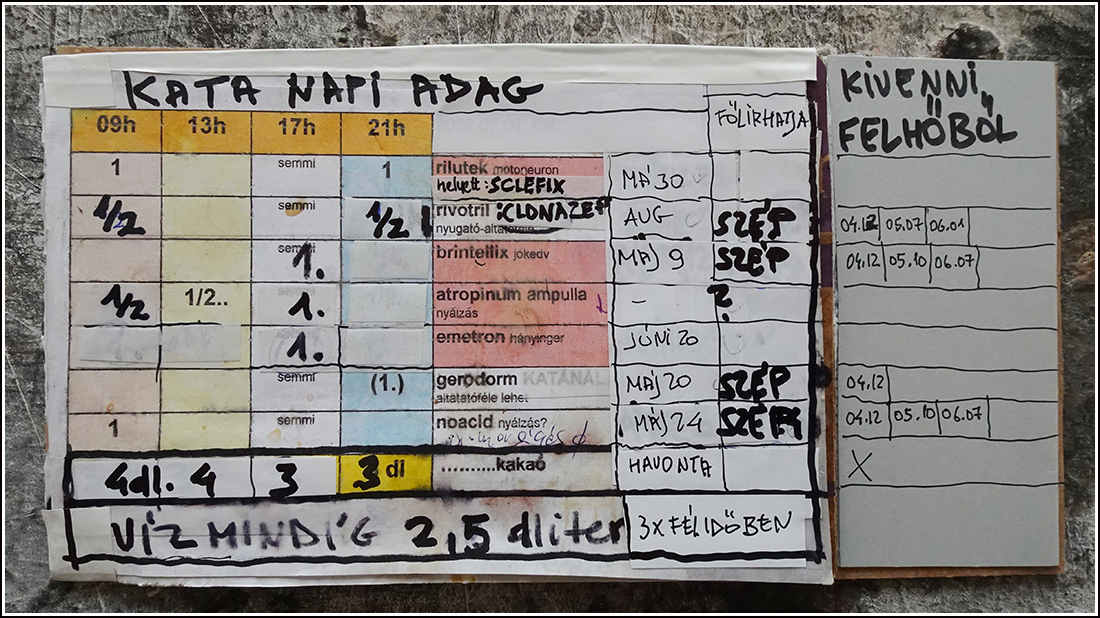 KATA NAPI ADAG
09h 13h 17h 21h FÖLIRHATJA
1 semmi 1 rilutek motoneuron MÁJ 30
helyett: SCLEFIX
1/2 semmi 1/2 rivotril : CLONAZEP AUG SZÉP
nyugató-altató
1. brintellix jókedv MÁJ 9 SZÉP
1/2 1/2.. 1. atropinum ampulla – ?
nyálzás
1. emetron hányinger JÚNI 20
semmi (1.) gerodorm KATÁNÁL MÁJ 20 SZÉP
altatóféle lehet
1 semmi noacid nyálzás? MÁJ 24 SZÉP
4dl. 4 3 3 dl ..........kakaó HAVONTA
VÍZ MINDÍG 2,5 dliter 3X FÉLIDŐBEN
KIVENNI
FELHŐBŐL
04.12 05.07 06.01
04.12 05.10 06.07
04.12
04.12 05.10 06.07
X